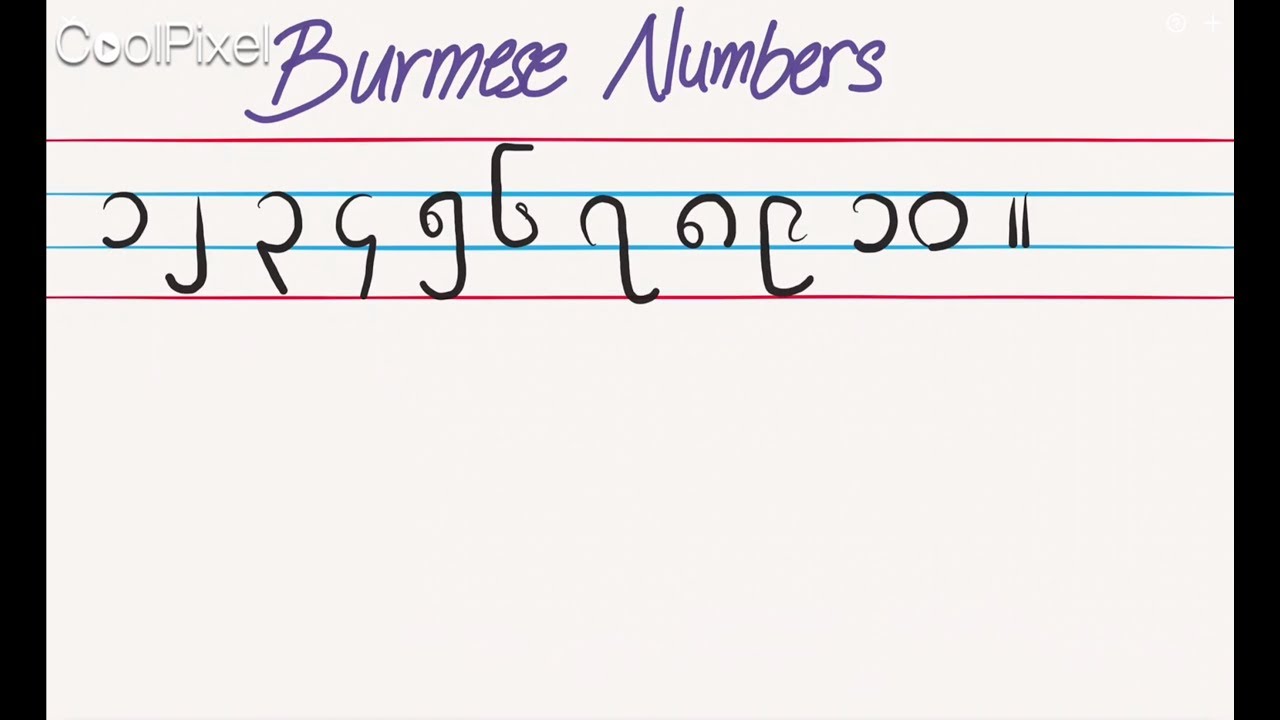 CoolPixel
Burmese Numbers
၁ ၂ ၃ ၄ ၅ ၆ ၇ ၈ ၉ ၁၀ ။